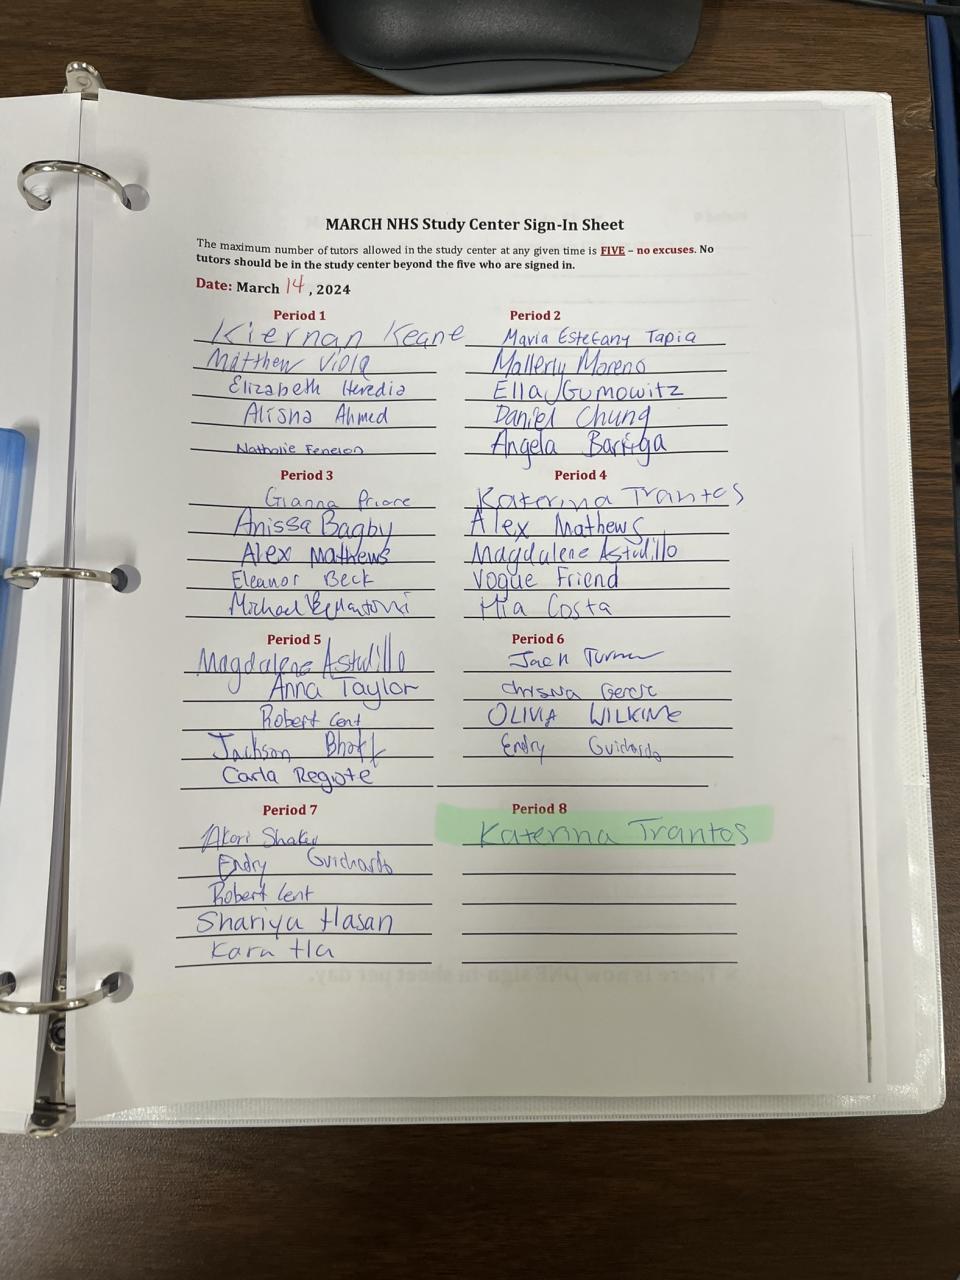 MARCH NHS Study Center Sign-In Sheet
The maximum number of tutors allowed in the study center at any given time is FIVE – no excuses. No
tutors should be in the study center beyond the five who are signed in.
Date: March 14, 2024
Period 1
Kiernan Keane
Matthew Viola
Elizabeth Heredia
Alisha Ahmed
Nathalie Fenelon
Period 2
Maria Estefany Tapia
Mallerly Moreno
Ella Gumowitz
Daniel Chung
Angela Barriga
Period 3
Gianna Priore
Anissa Bagby
Alex Mathews
Eleanor Beck
Michael Bellantoni
Period 4
Katerina Trantos
Alex Mathews
Magdalene Astudillo
Vogue Friend
Mia Costa
Period 5
Magdalene Astudillo
Anna Taylor
Robert Cent
Jackson Bhatt
Carla Regote
Period 6
Jack Turner
OLIVIA WILKINS
Endry Guichardo
Period 7
Akori
Endry Guichardo
Robert Cent
Shariya Hasan
Kara Hla
Period 8
Katerina Trantos
There is now ONE sign-in sheet per day.